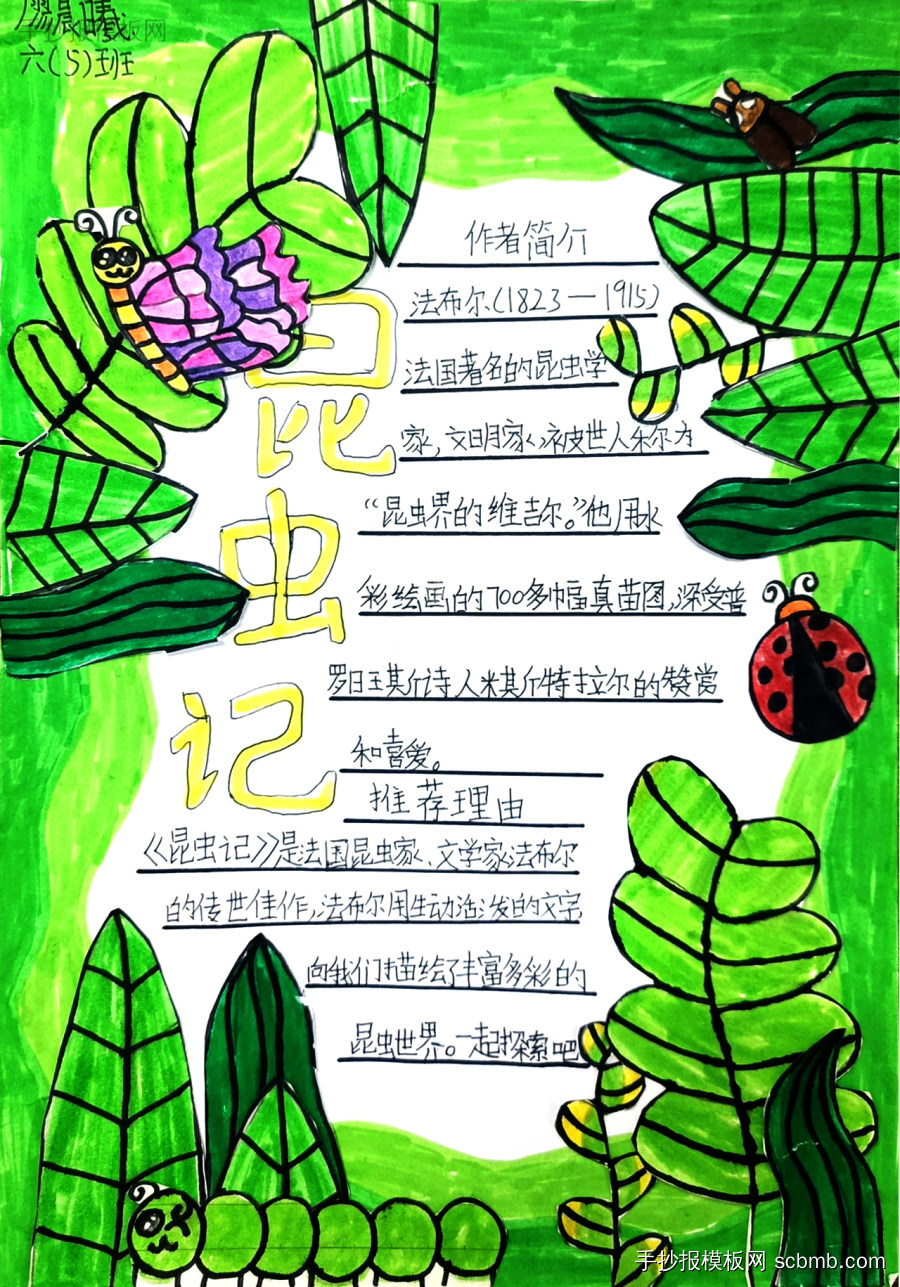 廖晨曦
六(5)班
昆虫记
作者简介
法布尔(1823—1915)
法国著名的昆虫学
家,文明家、被世人乐尔为
“昆虫界的维吉尔。”他用水
彩绘画的700多幅真苗图,深受普
罗旺斯诗人米其斯特拉尔的赞赏
和喜爱。
推荐理由
《昆虫记》是法国昆虫家、文学家法布尔
的传世佳作,法布尔用生动活泼的文字
向我们描绘了丰富多彩的
昆虫世界。一起探索吧
手抄报模板网 scbmb.com